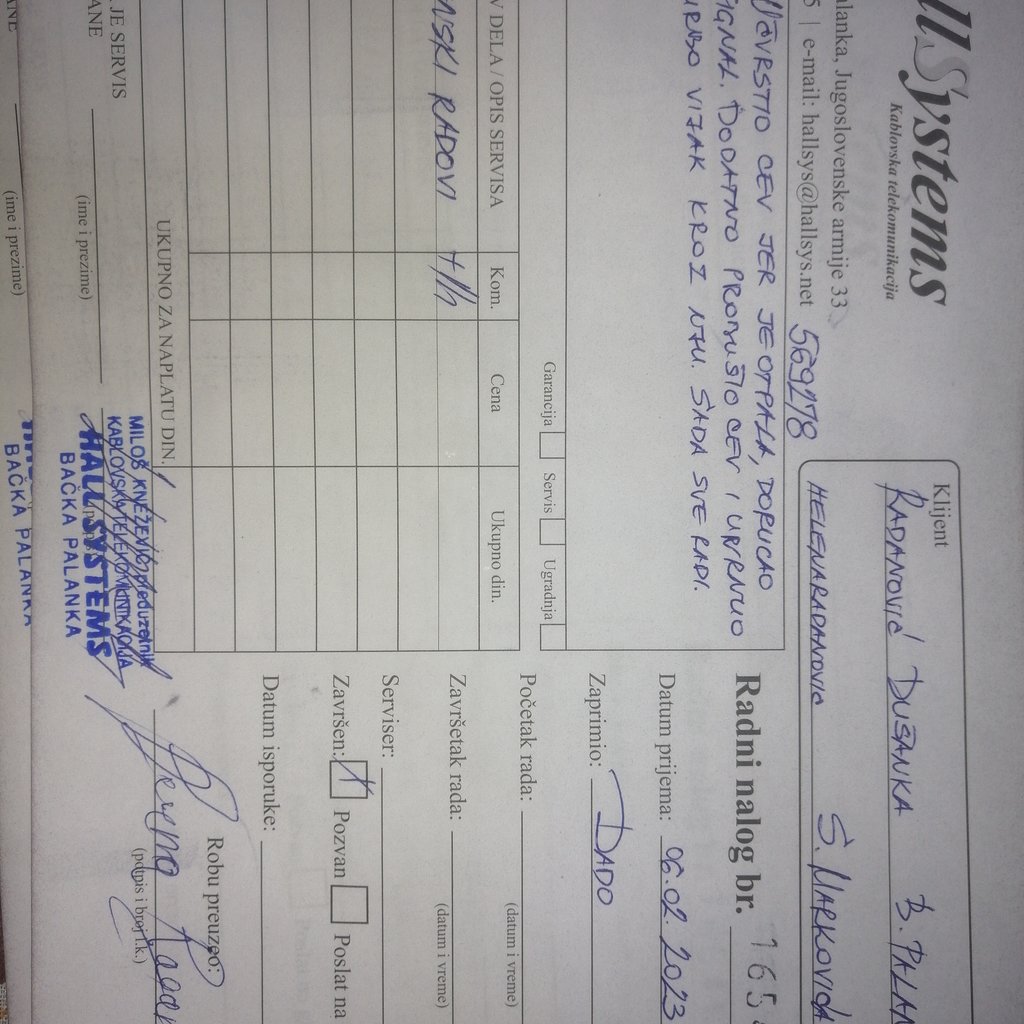 Systems
Kablovska telekomunikacija
alanka, Jugoslovenske armije 33
e-mail: hallsys@hallsys.net 569278
Klijent
RADANOVIĆ DUŠANKA B. PALAN
HELENARADANOVIC S. MARKOVIĆA
UČVRSTIO CEV JER JE OTPALA, DORUCAO
IGNAL. DODATNO PROBUŠIO CEV I UVRNUO
URBO VIJAK KROZ NJU. SADA SVE RADI.
Radni nalog br. 165
Datum prijema: 06.02.2023
Zaprimio: DADO
Početak rada:
(datum i vreme)
Završetak rada:
(datum i vreme)
Serviser:
Završen: X Pozvan Poslat na
Datum isporuke:
Garancija Servis Ugradnja
V DELA / OPIS SERVISA Kom. Cena Ukupno din.
MSKI RADOVI 1/h
UKUPNO ZA NAPLATU DIN.
JE SERVIS
ANE
(ime i prezime)
MILOŠ KNEŽEVIĆ preduzetnik
KABLOVSKA TELEKOMUNIKACIJA
HALL SYSTEMS
BAČKA PALANKA
Robu preuzeo:
(potpis i broj l.k.)
ANE
(ime i prezime)
BAČKA PALANKA